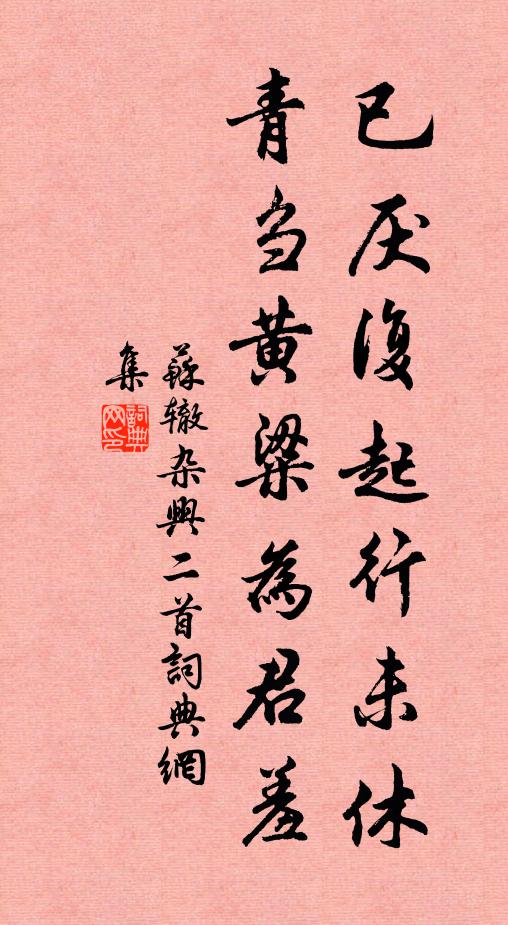 已厌復起行未休
青刍黄粱為君羞
蘇辙杂興二首詞典網
集
詞典
网印